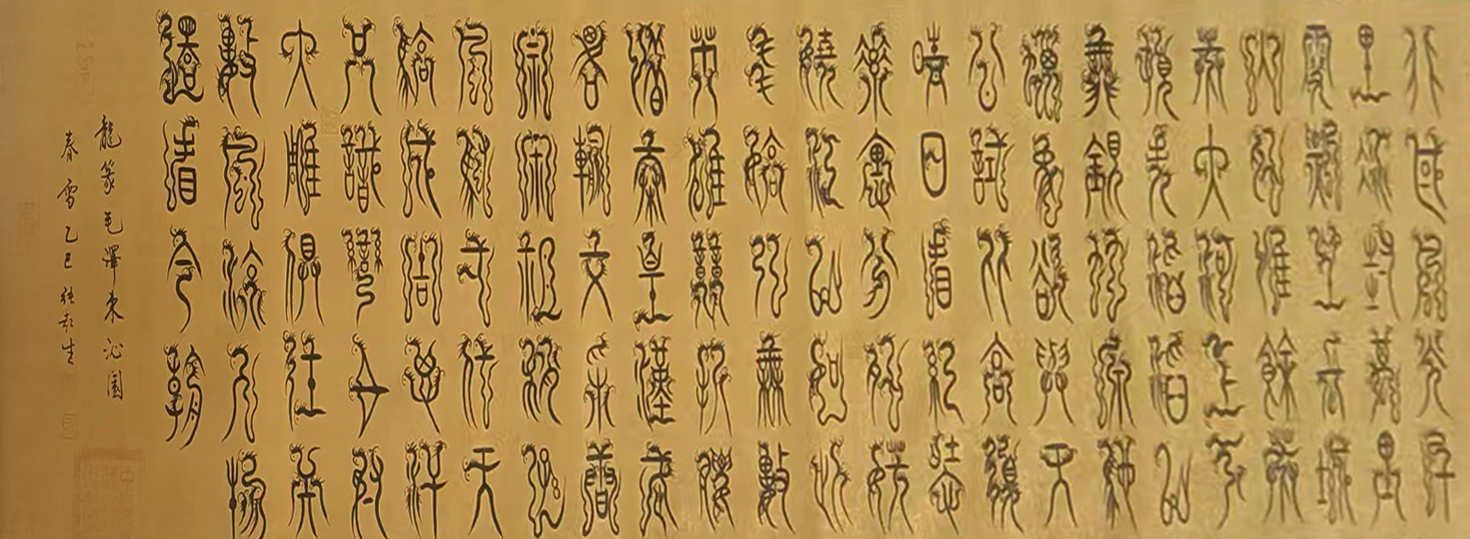 北國風光千
里冰封萬里
雪飄望長城
內外惟餘莽
莽大河上下
頓失滔滔山
舞銀蛇原馳
蠟象欲與天
公試比高須
晴日看紅裝
素裹分外妖
嬈江山如此
多嬌引無數
英雄競折腰
惜秦皇漢武
略輸文采唐
宗宋祖稍遜
風騷一代天
驕成吉思汗
只識彎弓射
大雕俱往矣
數風流人物
還看今朝
龍篆毛澤東沁園
春雪乙巳